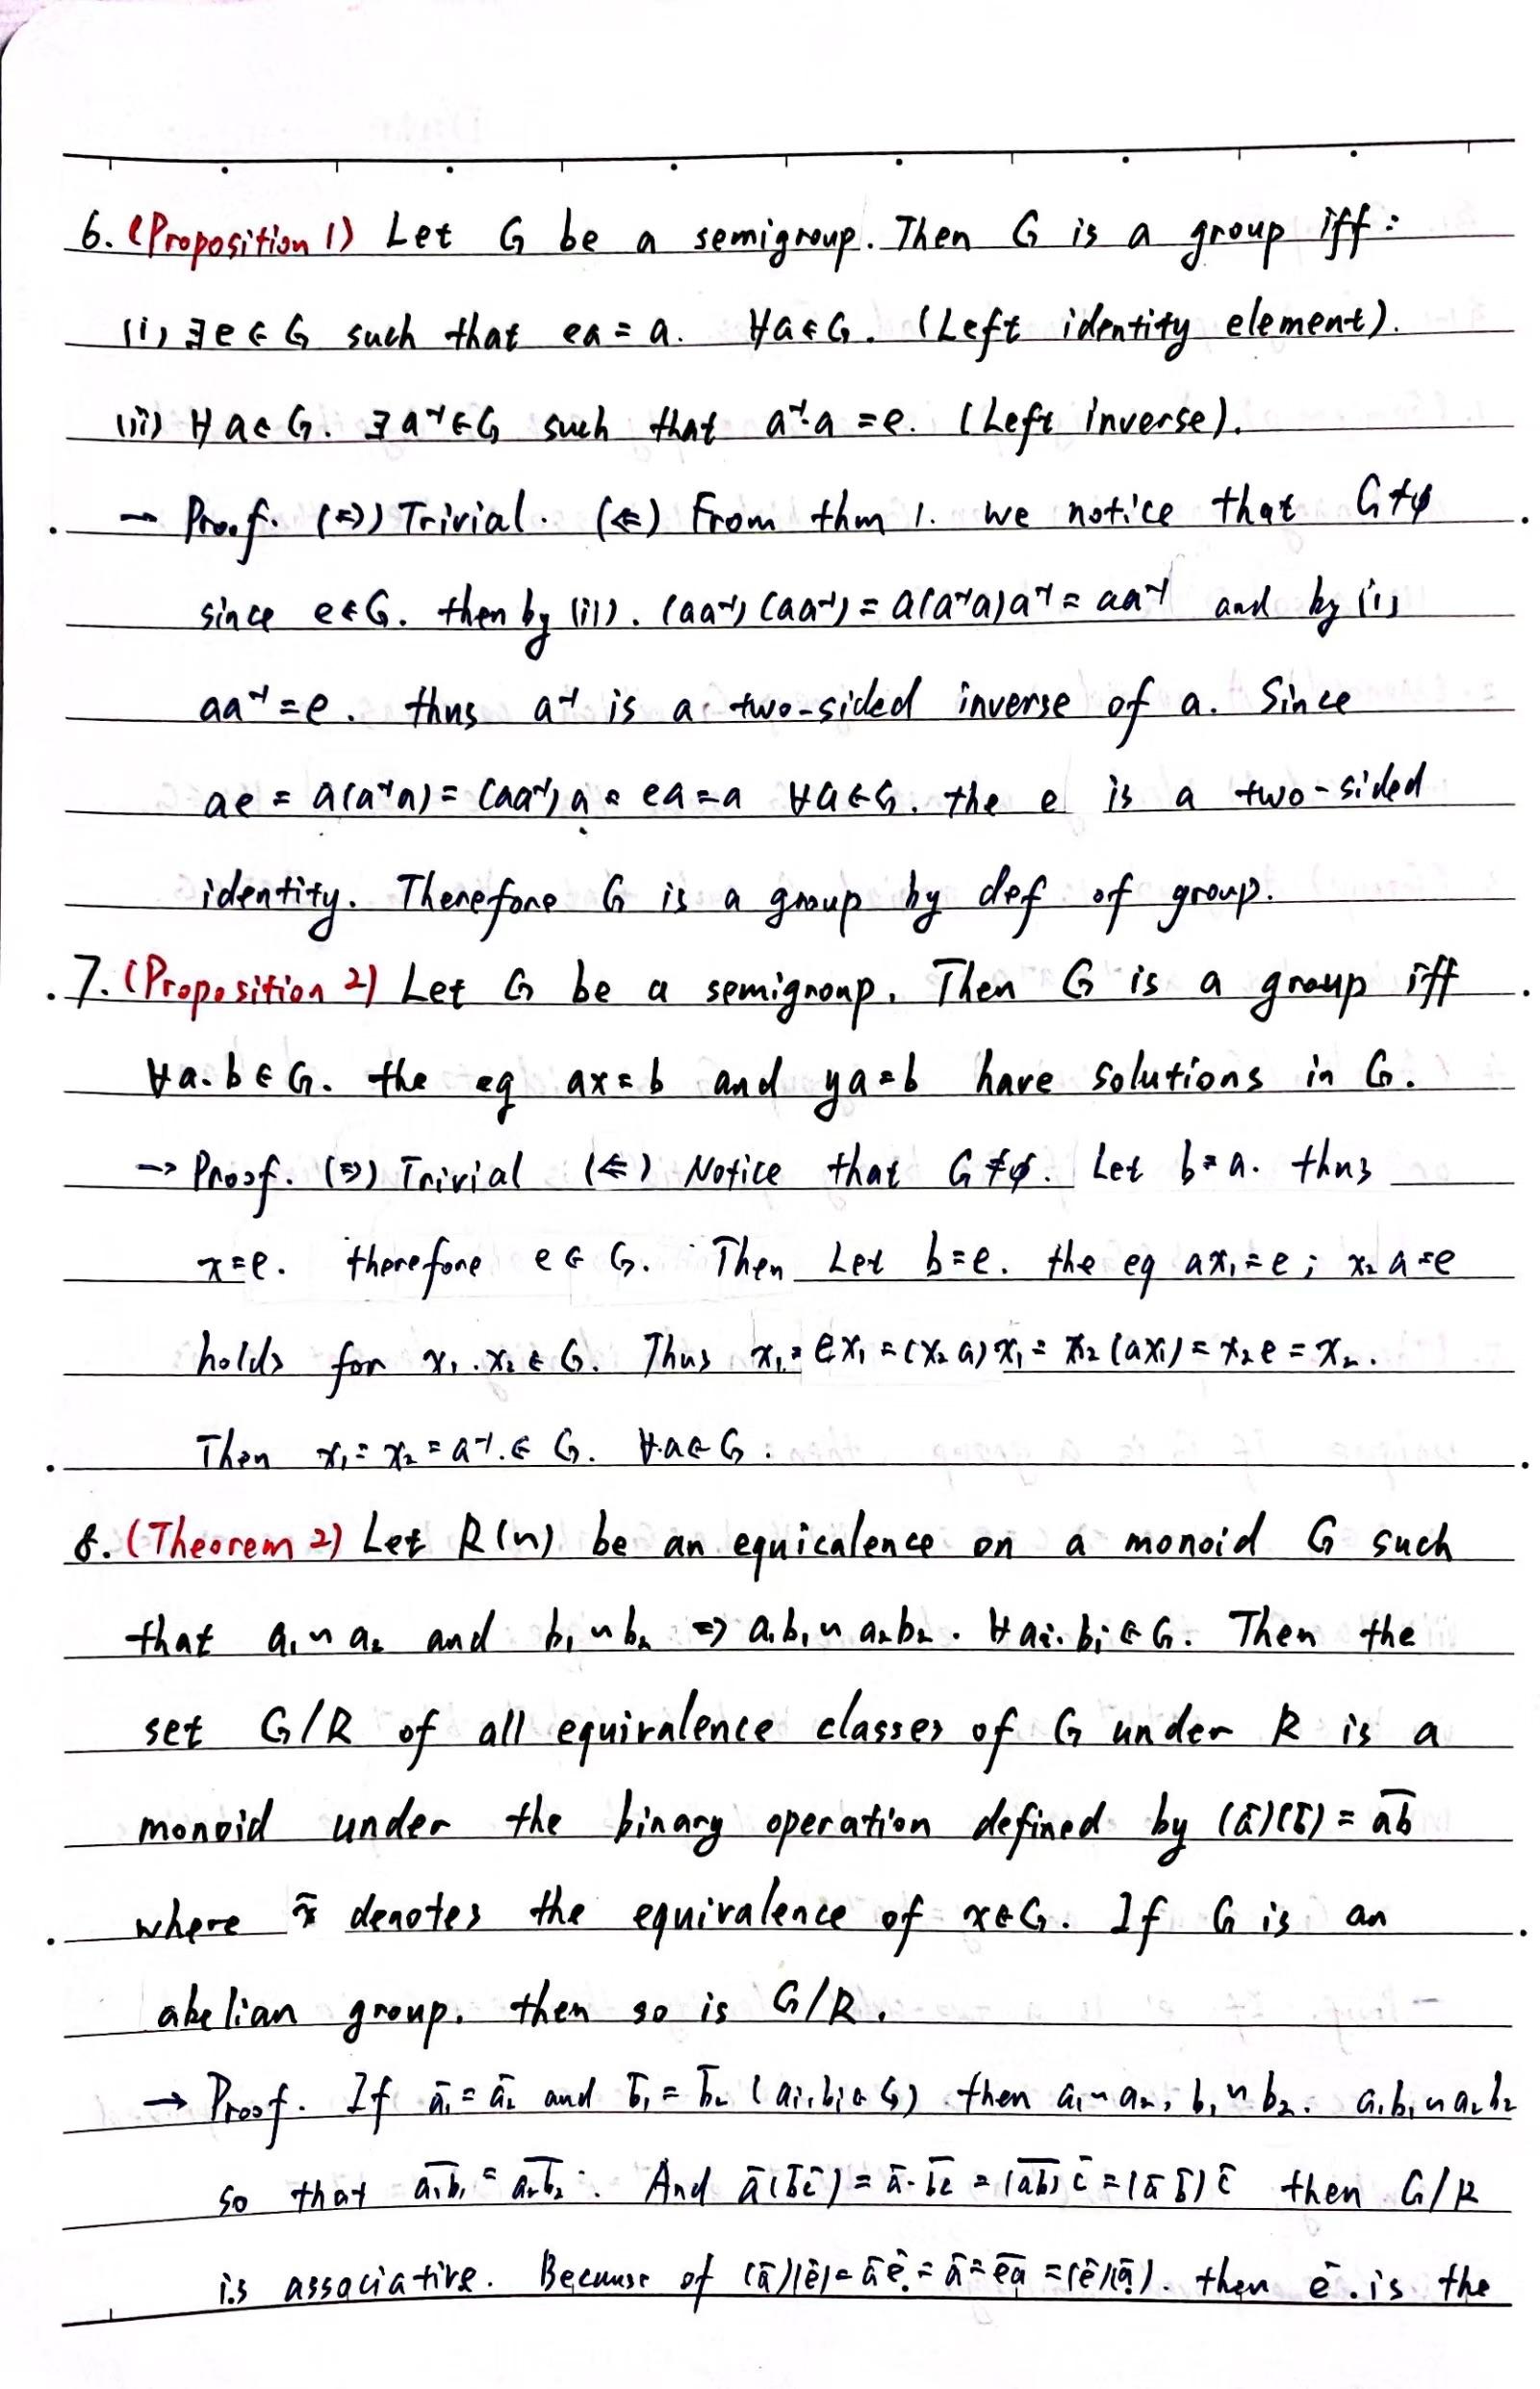 6. (Proposition 1) Let G be a semigroup. Then G is a group iff:
(i) ∃e∈G such that ea = a. ∀a∈G. (Left identity element).
(ii) ∀a∈G. ∃a⁻¹∈G such that a⁻¹·a = e. (Left inverse).
→ Proof. (⇒) Trivial. (⇐) From thm 1. we notice that G≠φ
since e∈G. then by (ii). (aa⁻¹)(aa⁻¹) = a(a⁻¹a)a⁻¹ = aa⁻¹ and by (i)
aa⁻¹ = e. thus a⁻¹ is a two-sided inverse of a. Since
ae = a(a⁻¹a) = (aa⁻¹)a = ea = a ∀a∈G. the e is a two-sided
identity. Therefore G is a group by def of group.
7. (Proposition 2) Let G be a semigroup. Then G is a group iff
∀a.b∈G. the eq ax=b and ya=b have solutions in G.
→ Proof. (⇒) Trivial (⇐) Notice that G≠φ. Let b=a. thus
x=e. therefore e∈G. Then Let b=e. the eq ax₁=e; x₂a=e
holds for x₁.x₂∈G. Thus x₁=ex₁=(x₂a)x₁=x₂(ax₁)=x₂e=x₂.
Then x₁=x₂=a⁻¹.∈G. ∀.a∈G.
8. (Theorem 2) Let R(~) be an equicalence on a monoid G such
that a₁~a₂ and b₁~b₂ ⇒ a₁b₁~a₂b₂. ∀aᵢ.bᵢ∈G. Then the
set G/R of all equivalence classes of G under R is a
monoid under the binary operation defined by (ā)(b̄) = \overline{ab}
where x̄ denotes the equivalence of x∈G. If G is an
abelian group. then so is G/R.
→ Proof. If ā₁=ā₂ and b̄₁=b̄₂ (aᵢ.bᵢ∈G) then a₁~a₂, b₁~b₂. a₁b₁~a₂b₂
so that \overline{a₁b₁} = \overline{a₂b₂}. And ā(b̄c̄) = ā·\overline{bc} = (\overline{ab})c̄ = (ā b̄)c̄ then G/R
is associative. Because of (ā)(ē)=āē=ā=\overline{ea}=(ē)(ā). then ē.is the